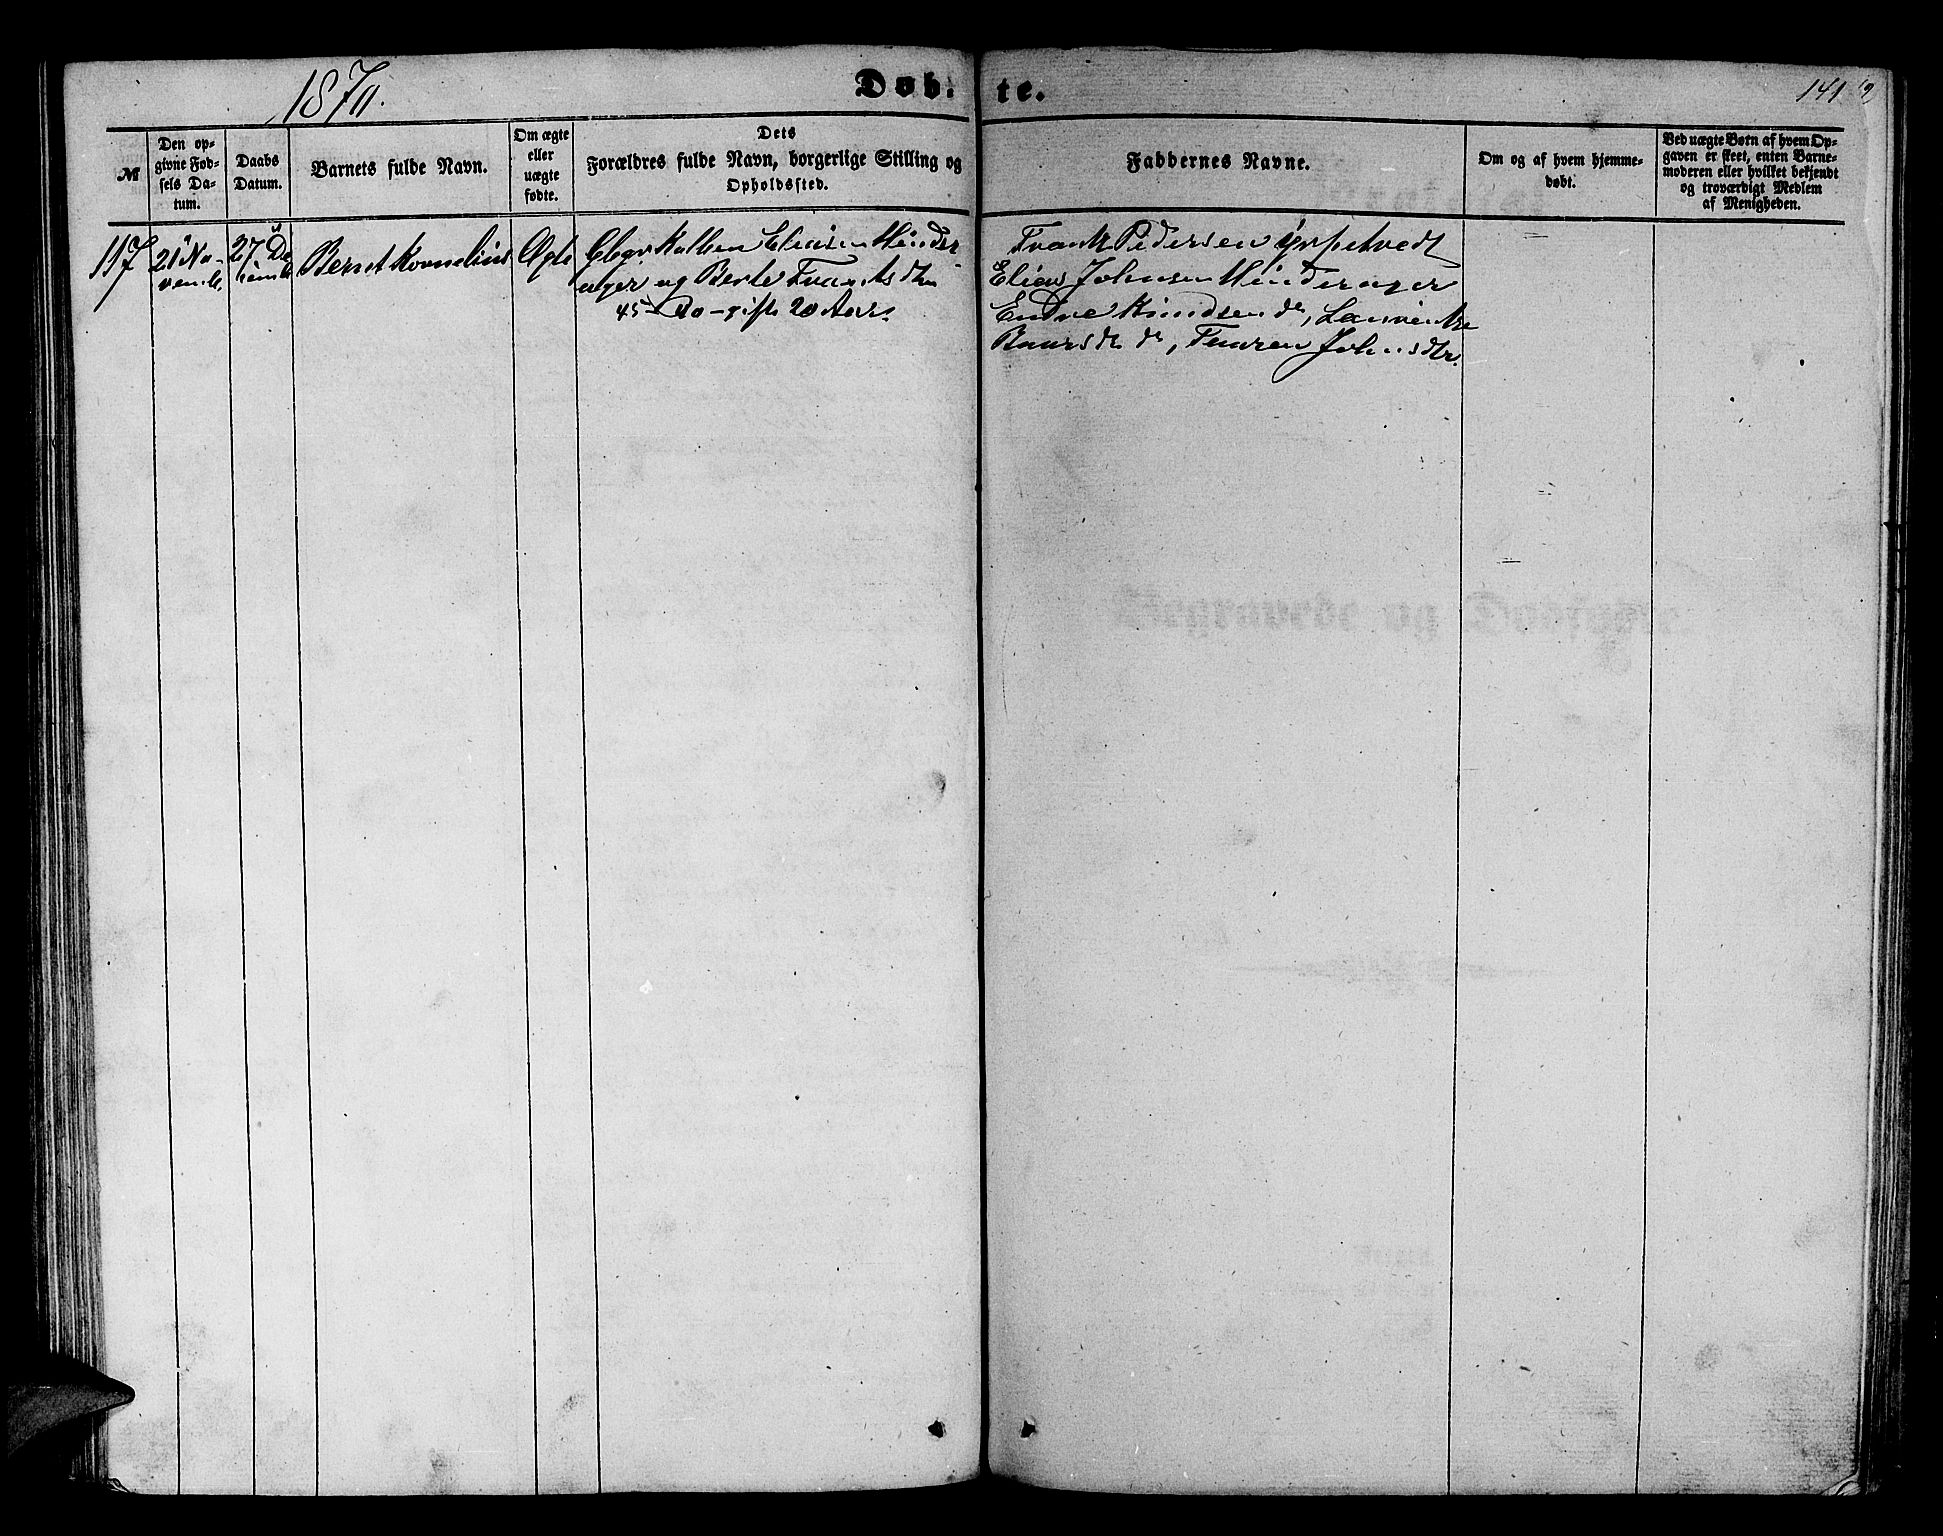 1870.
Døb-
te.
141
№
Den op-
givne Fød-
sels Da-
tum.
Daabs
Datum.
Barnets fulde Navn.
Om ægte
eller
uægte
fødte.
Dets
Forældres fulde Navn, borgerlige Stilling og
Opholdssted.
Faddernes Navne.
Om og af hvem hjemme-
døbt.
Ved uægte Børn af hvem Op-
gaven er skeet, enten Barne-
moderen eller hvilket bekjendt
og troværdigt Medlem
af Menigheden.
117
21 No-
vemb.
27 De
cemb
Bernt Kornelius
Ægte
Eliasen Hinder-
ager og Berte Frantsdtr
45 - 40 - gift 20 Aar.
Frants Pedersen
Elias Johnsen Hinderager
Endre Knudsen do,
Baarsdr do, Johnsdtr.